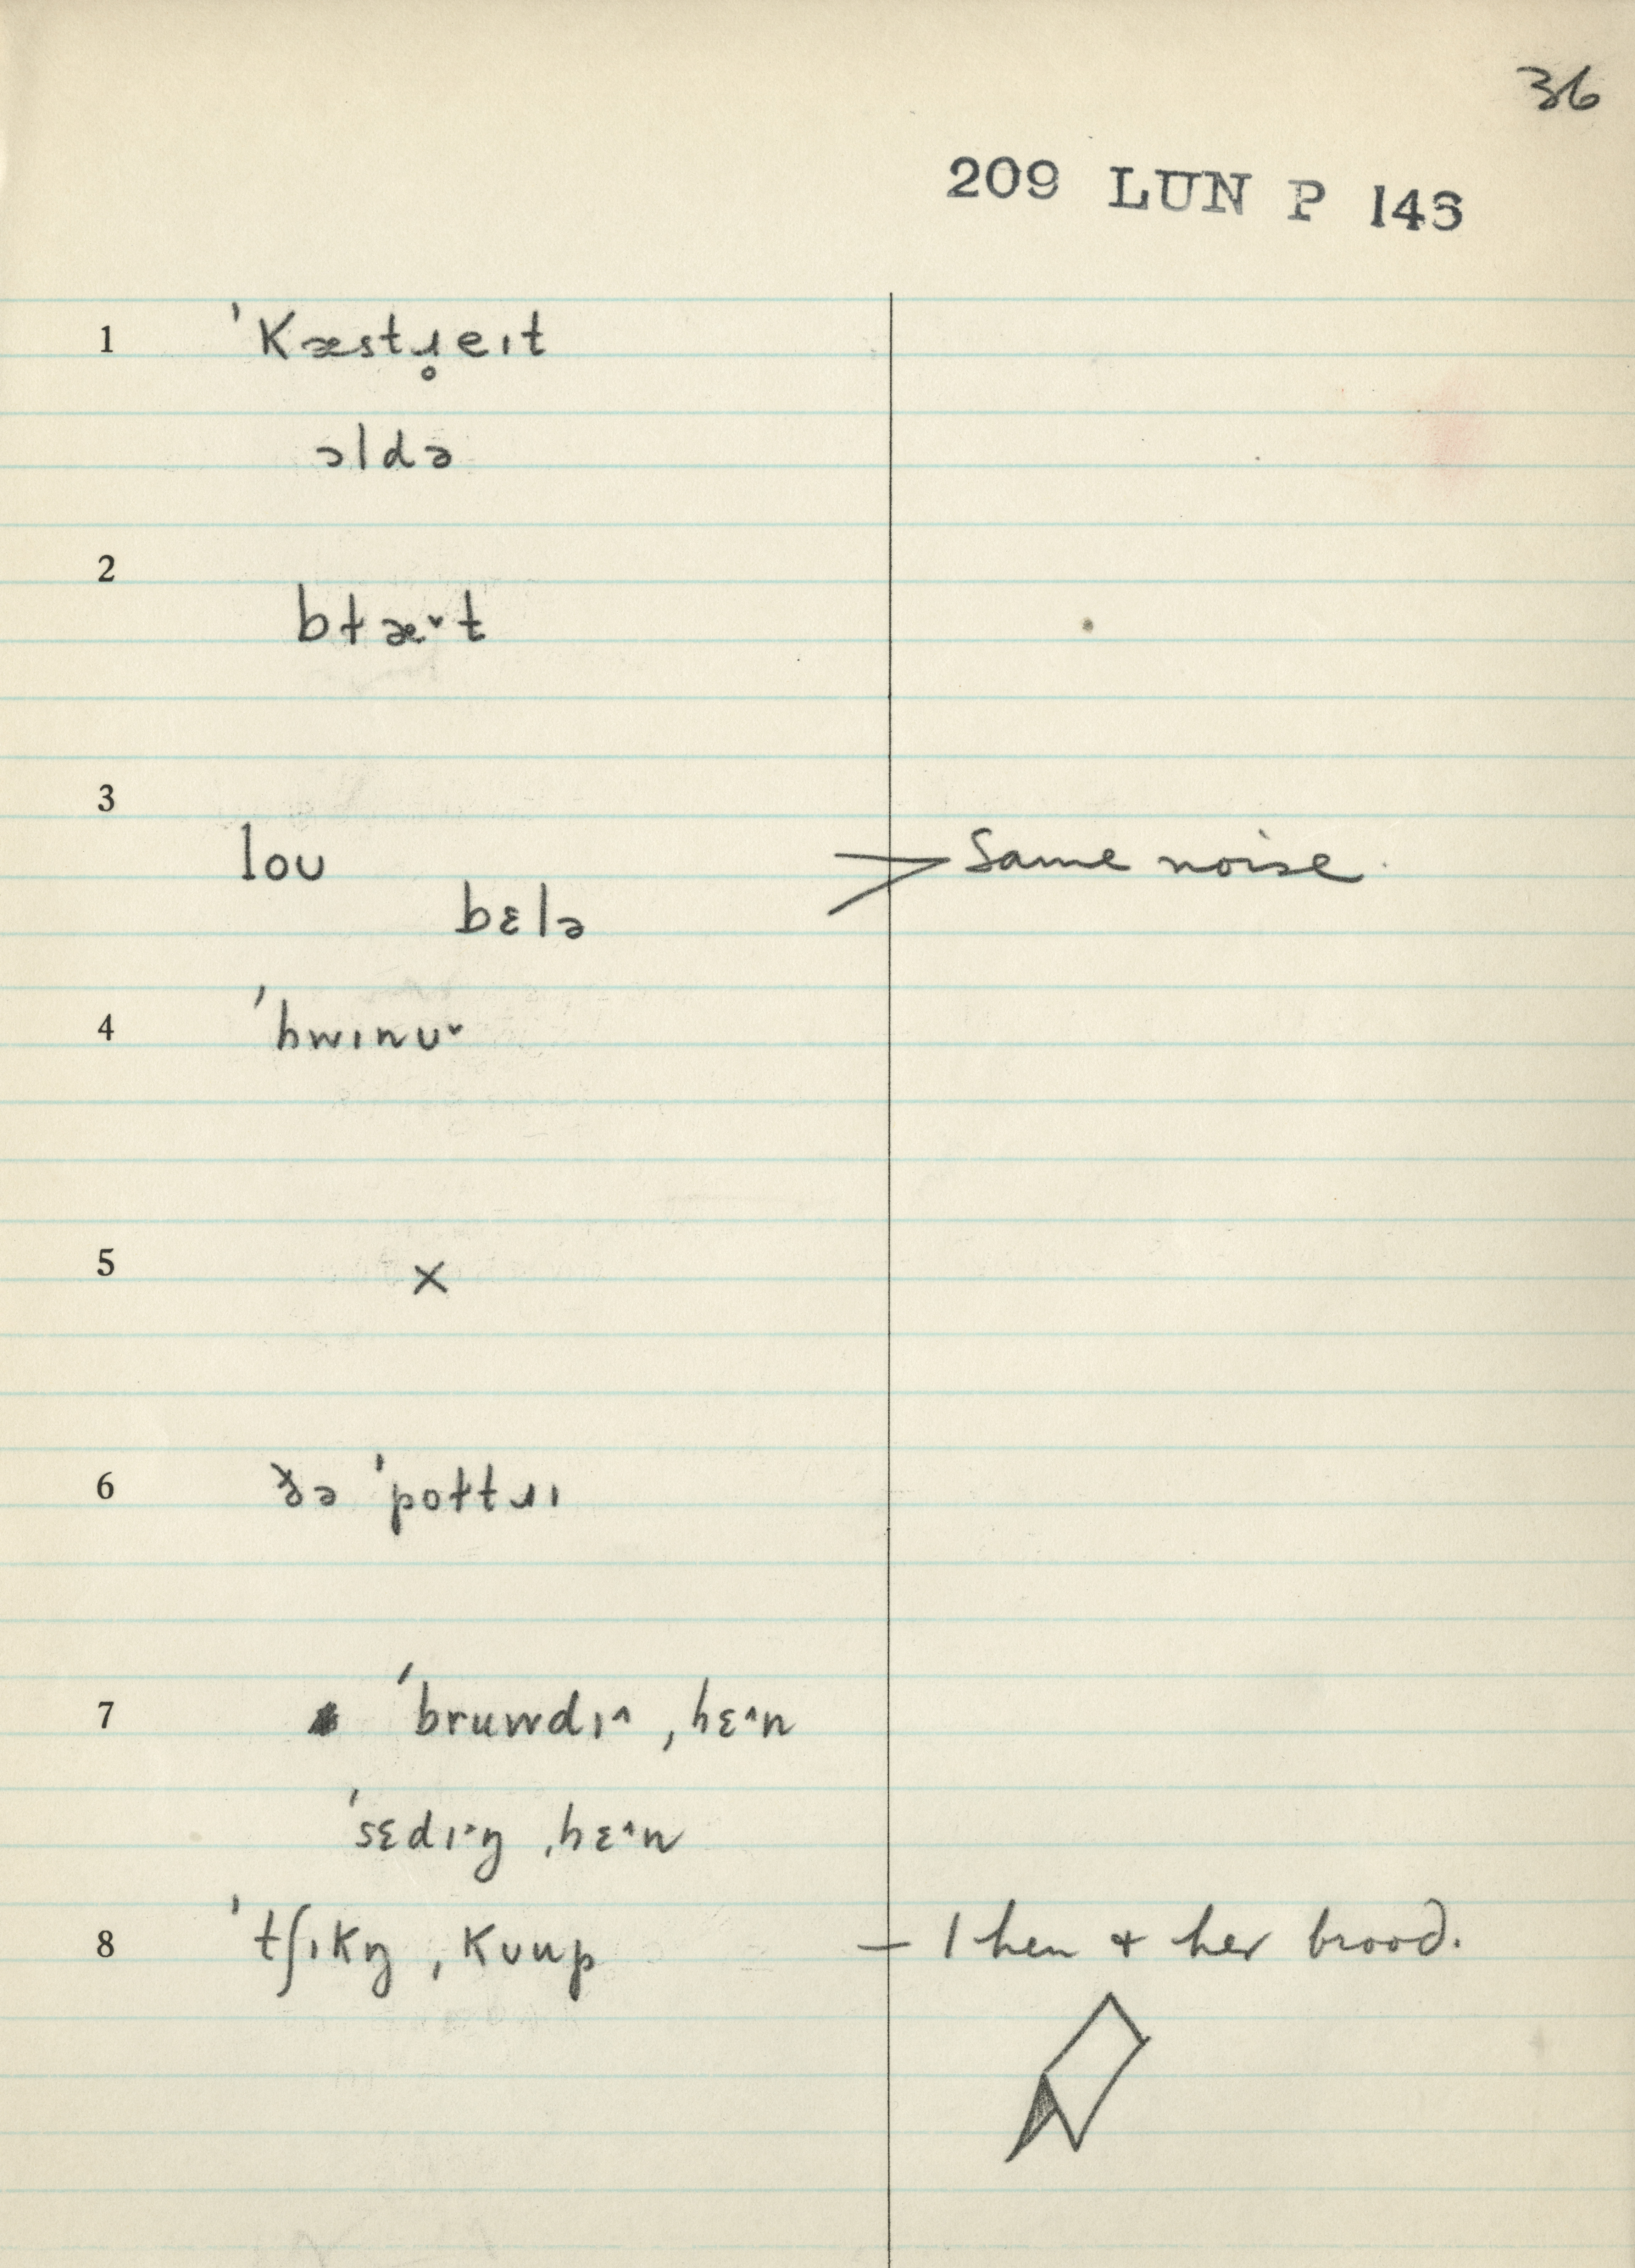 36
209 LUN P 146
1 ˈkæstɹ̥eɪt
əldə
2 bɫæˇt
3
loʊ > Same noise.
bɛlə
4 ˈhwɪnʊˇ
5 ×
6 ðə ˈpoɫtɹɪ
7 ˈbruwdɪ^ ˌhɛ^n
ˈsɛdɪ^ŋ ˌhɛ^n
8 ˈtʃɪkŋ ˌkʊup – 1 hen + her brood.